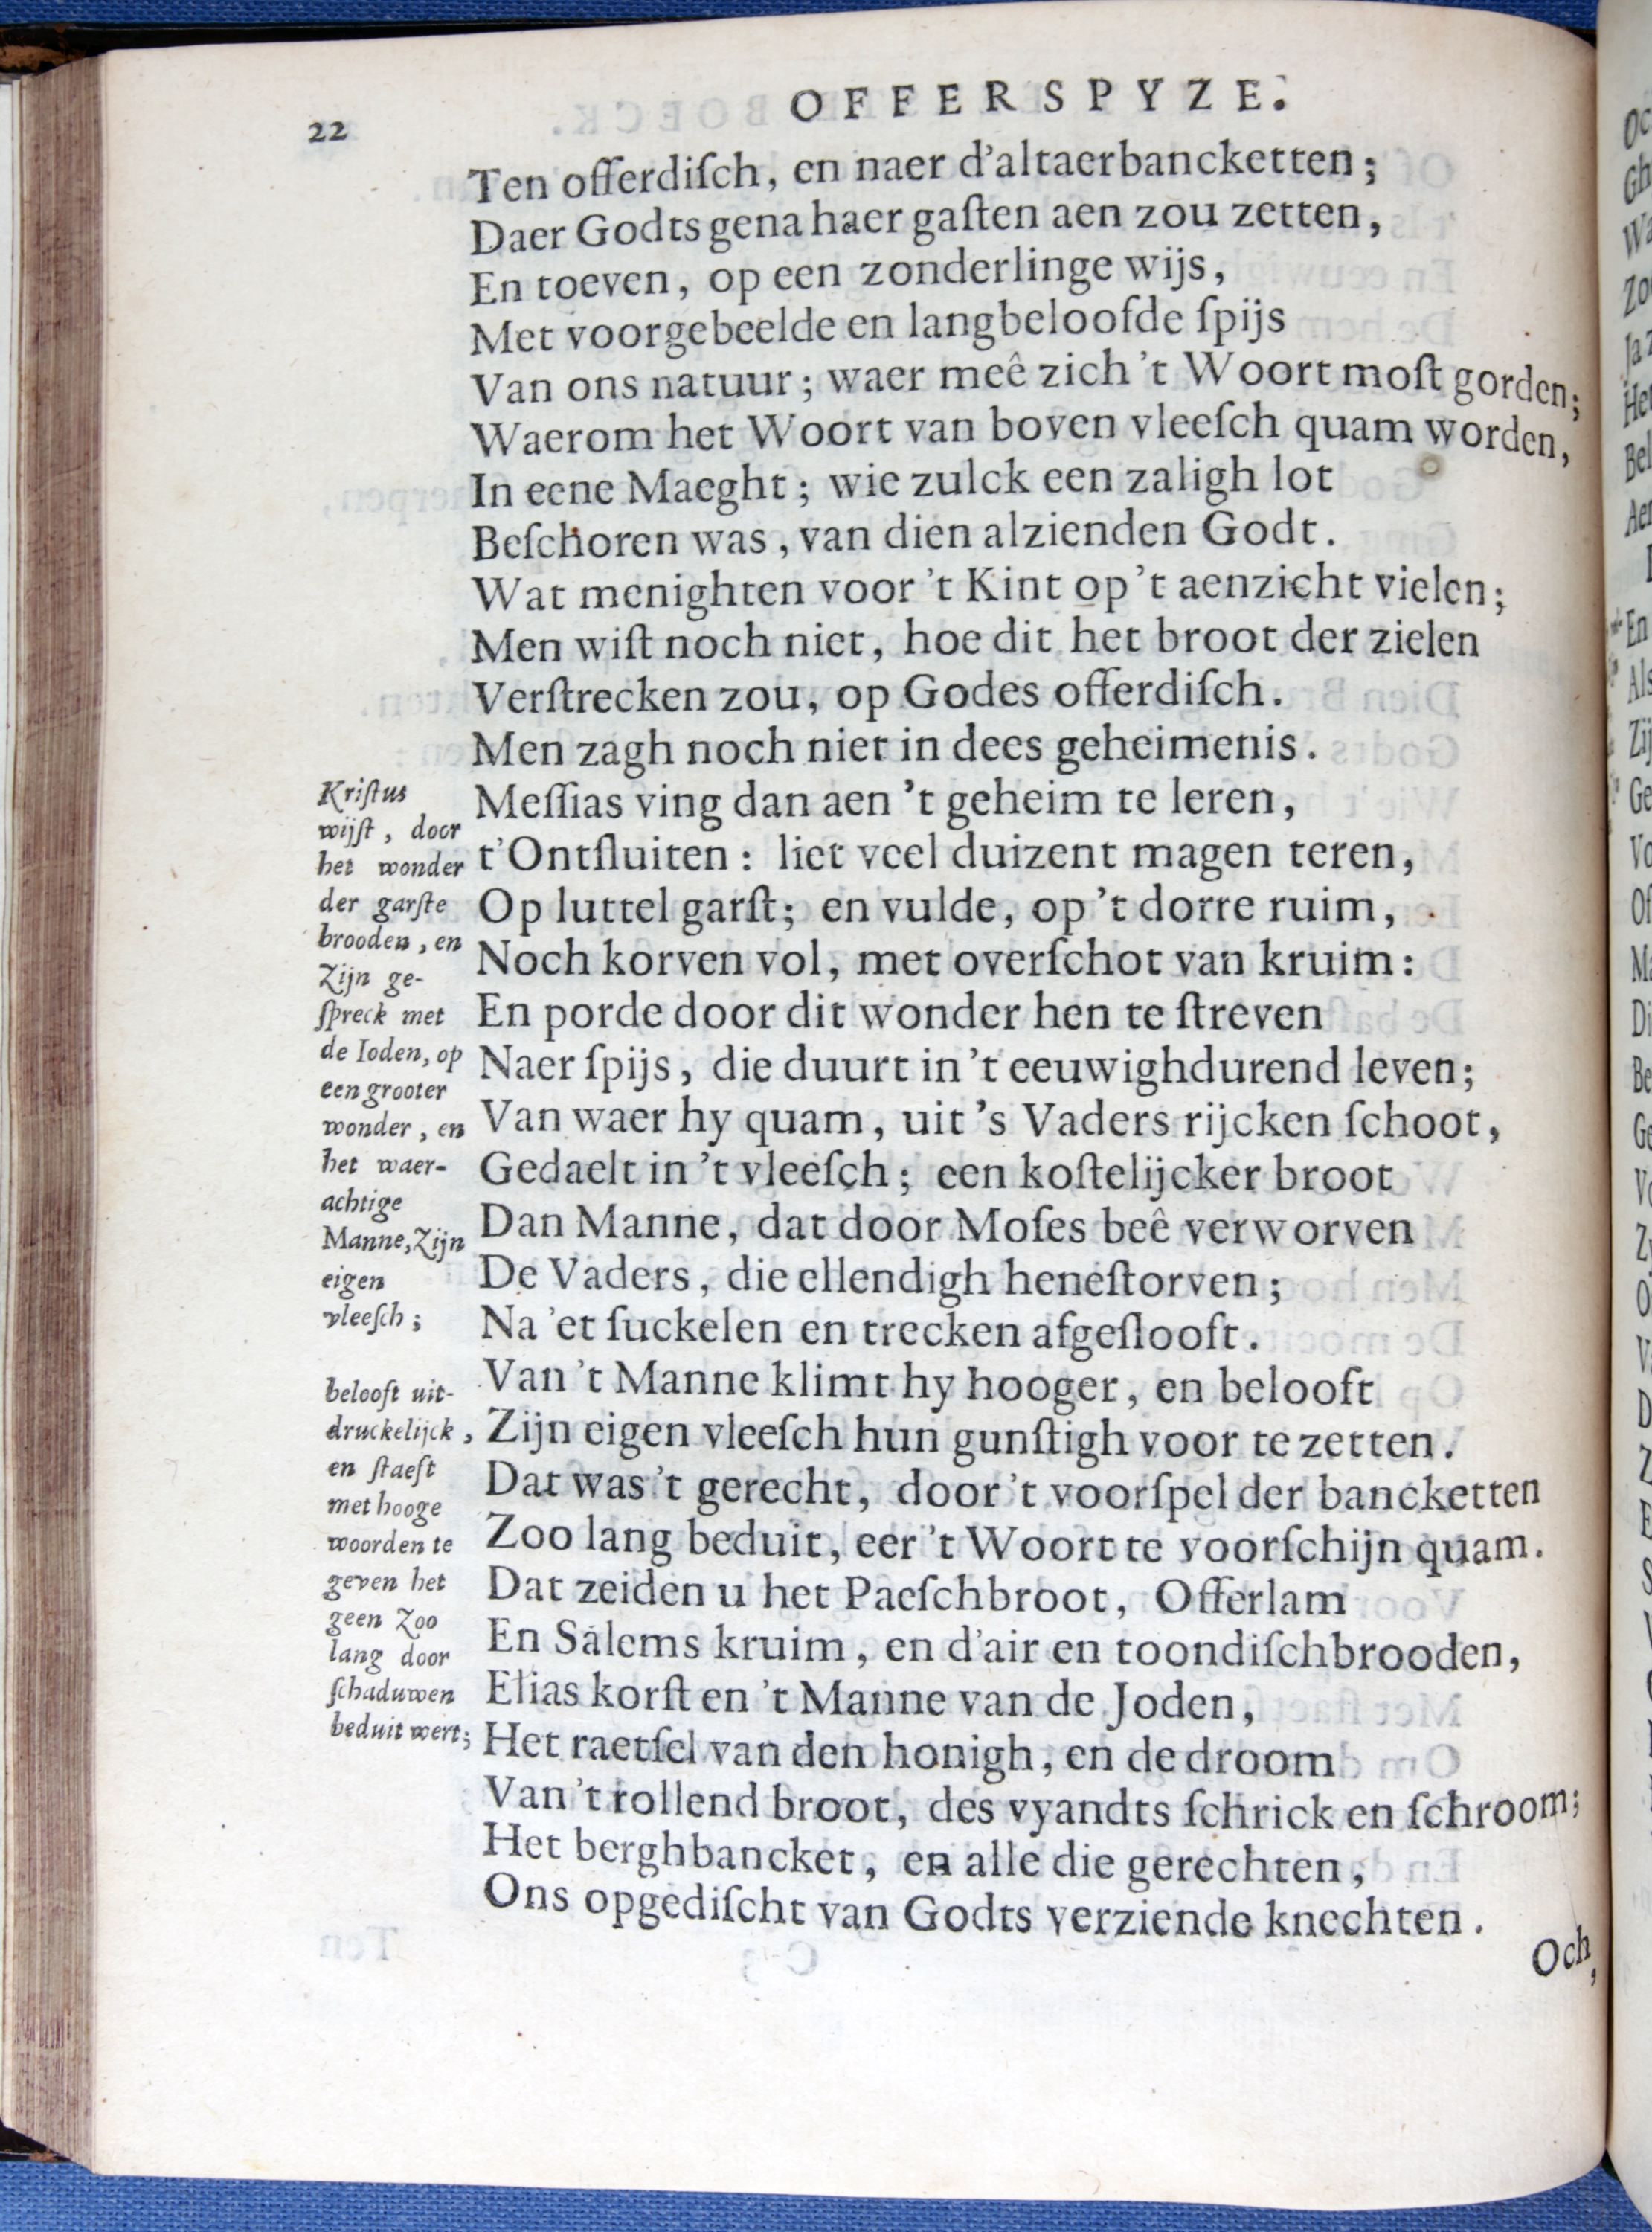 22
OFFERSPYZE.
Ten offerdiſch, en naer d'altaerbancketten;
Daer Godts gena haer gaſten aen zou zetten,
En toeven, op een zonderlinge wijs,
Met voorgebeelde en langbeloofde ſpijs
Van ons natuur; waer meê zich 't Woort moſt gorden;
Waerom het Woort van boven vleeſch quam worden,
In eene Maeght; wie zulck een zaligh lot
Beſchoren was, van dien alzienden Godt.
Wat menighten voor 't Kint op 't aenzicht vielen;
Men wiſt noch niet, hoe dit het broot der zielen
Verſtrecken zou, op Godes offerdiſch.
Men zagh noch niet in dees geheimenis.
Meſſias ving dan aen 't geheim te leren,
t'Ontſluiten: liet veel duizent magen teren,
Op luttel garſt; en vulde, op 't dorre ruim,
Noch korven vol, met overſchot van kruim:
En porde door dit wonder hen te ſtreven
Naer ſpijs, die duurt in 't eeuwighdurend leven;
Van waer hy quam, uit 's Vaders rijcken ſchoot,
Gedaelt in 't vleeſch; een koſtelijcker broot
Dan Manne, dat door Moſes beê verworven
De Vaders, die ellendigh heneſtorven;
Na 'et ſuckelen en trecken afgeſlooft.
Van 't Manne klimt hy hooger, en belooft
Zijn eigen vleeſch hun gunſtigh voor te zetten.
Dat was 't gerecht, door 't voorſpel der bancketten
Zoo lang beduit, eer 't Woort te voorſchijn quam.
Dat zeiden u het Paeſchbroot, Offerlam
En Salems kruim, en d'air en toondiſchbrooden,
Elias korſt en 't Manne van de Joden,
Het raetſel van den honigh, en de droom
Van 't rollend broot, des vyandts ſchrick en ſchroom;
Het berghbancket, en alle die gerechten,
Ons opgediſcht van Godts verziende knechten.
Och,
Kriſtus
wijſt, door
het wonder
der garſte
brooden, en
Zijn ge-
ſpreck met
de Ioden, op
een grooter
wonder, en
het waer-
achtige
Manne, Zijn
eigen
vleeſch;
belooft uit-
druckelijck,
en ſtaeft
met hooge
woorden te
geven het
geen Zoo
lang door
ſchaduwen
beduit wert;